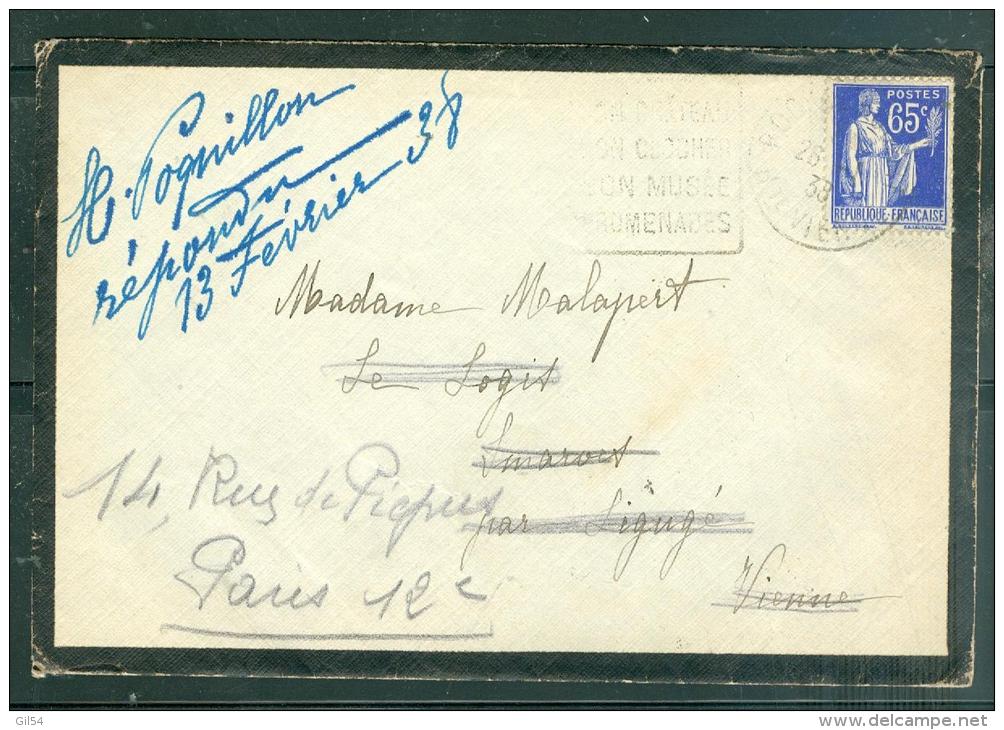 H. Poquillon
répondu
13 Février 38
SON CLOCHER
SON MUSÉE
PROMENADES
POSTES
65c
RÉPUBLIQUE FRANÇAISE
Madame Malapert
Le Logis
Smarves
par Ligugé
Vienne
14, Rue de Picpus
Paris 12e
Gil54
www.delcampe.net